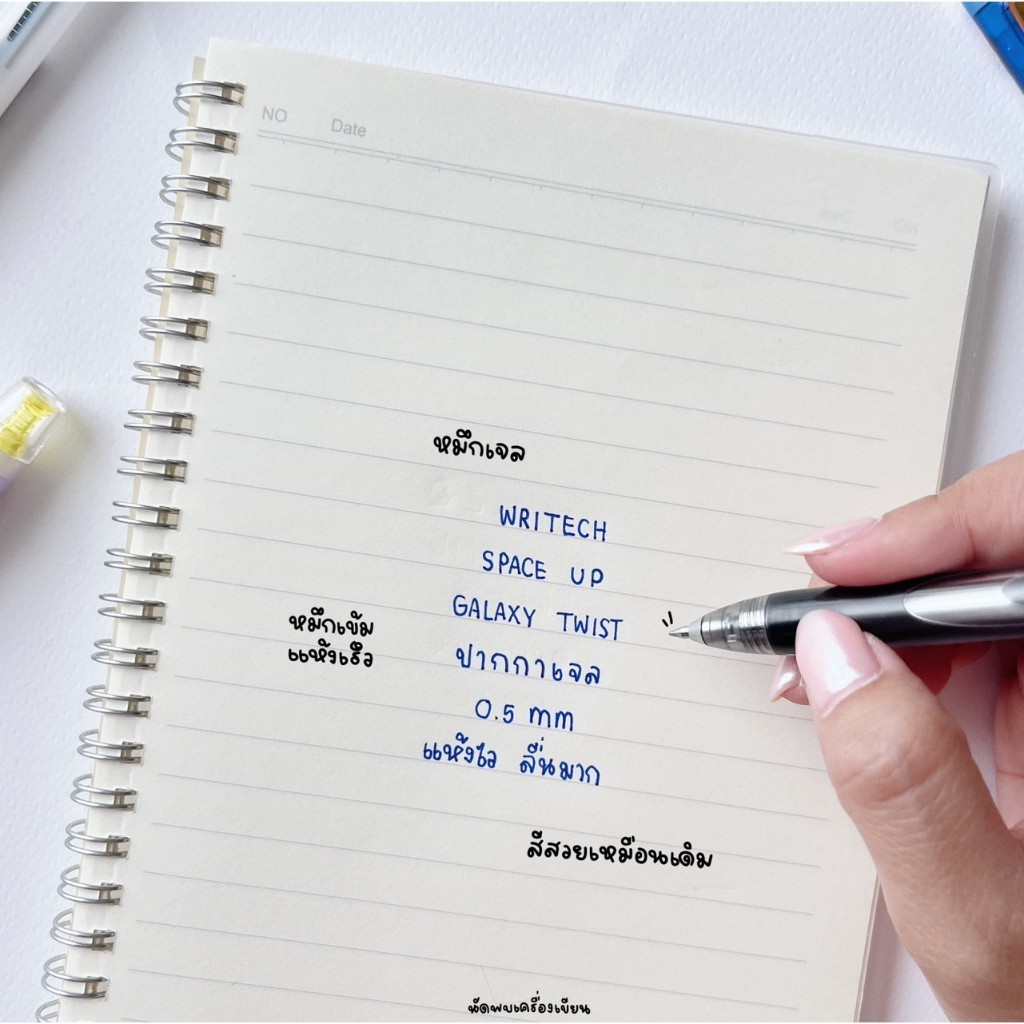 NO Date
หมึกเจล
WRITECH
SPACE UP
GALAXY TWIST
หมึกเข้ม
แห้งเร็ว
ปากกาเจล
0.5 mm
แห้งไว ลื่นมาก
สีสวยเหมือนเดิม
นัดพบเครื่องเขียน